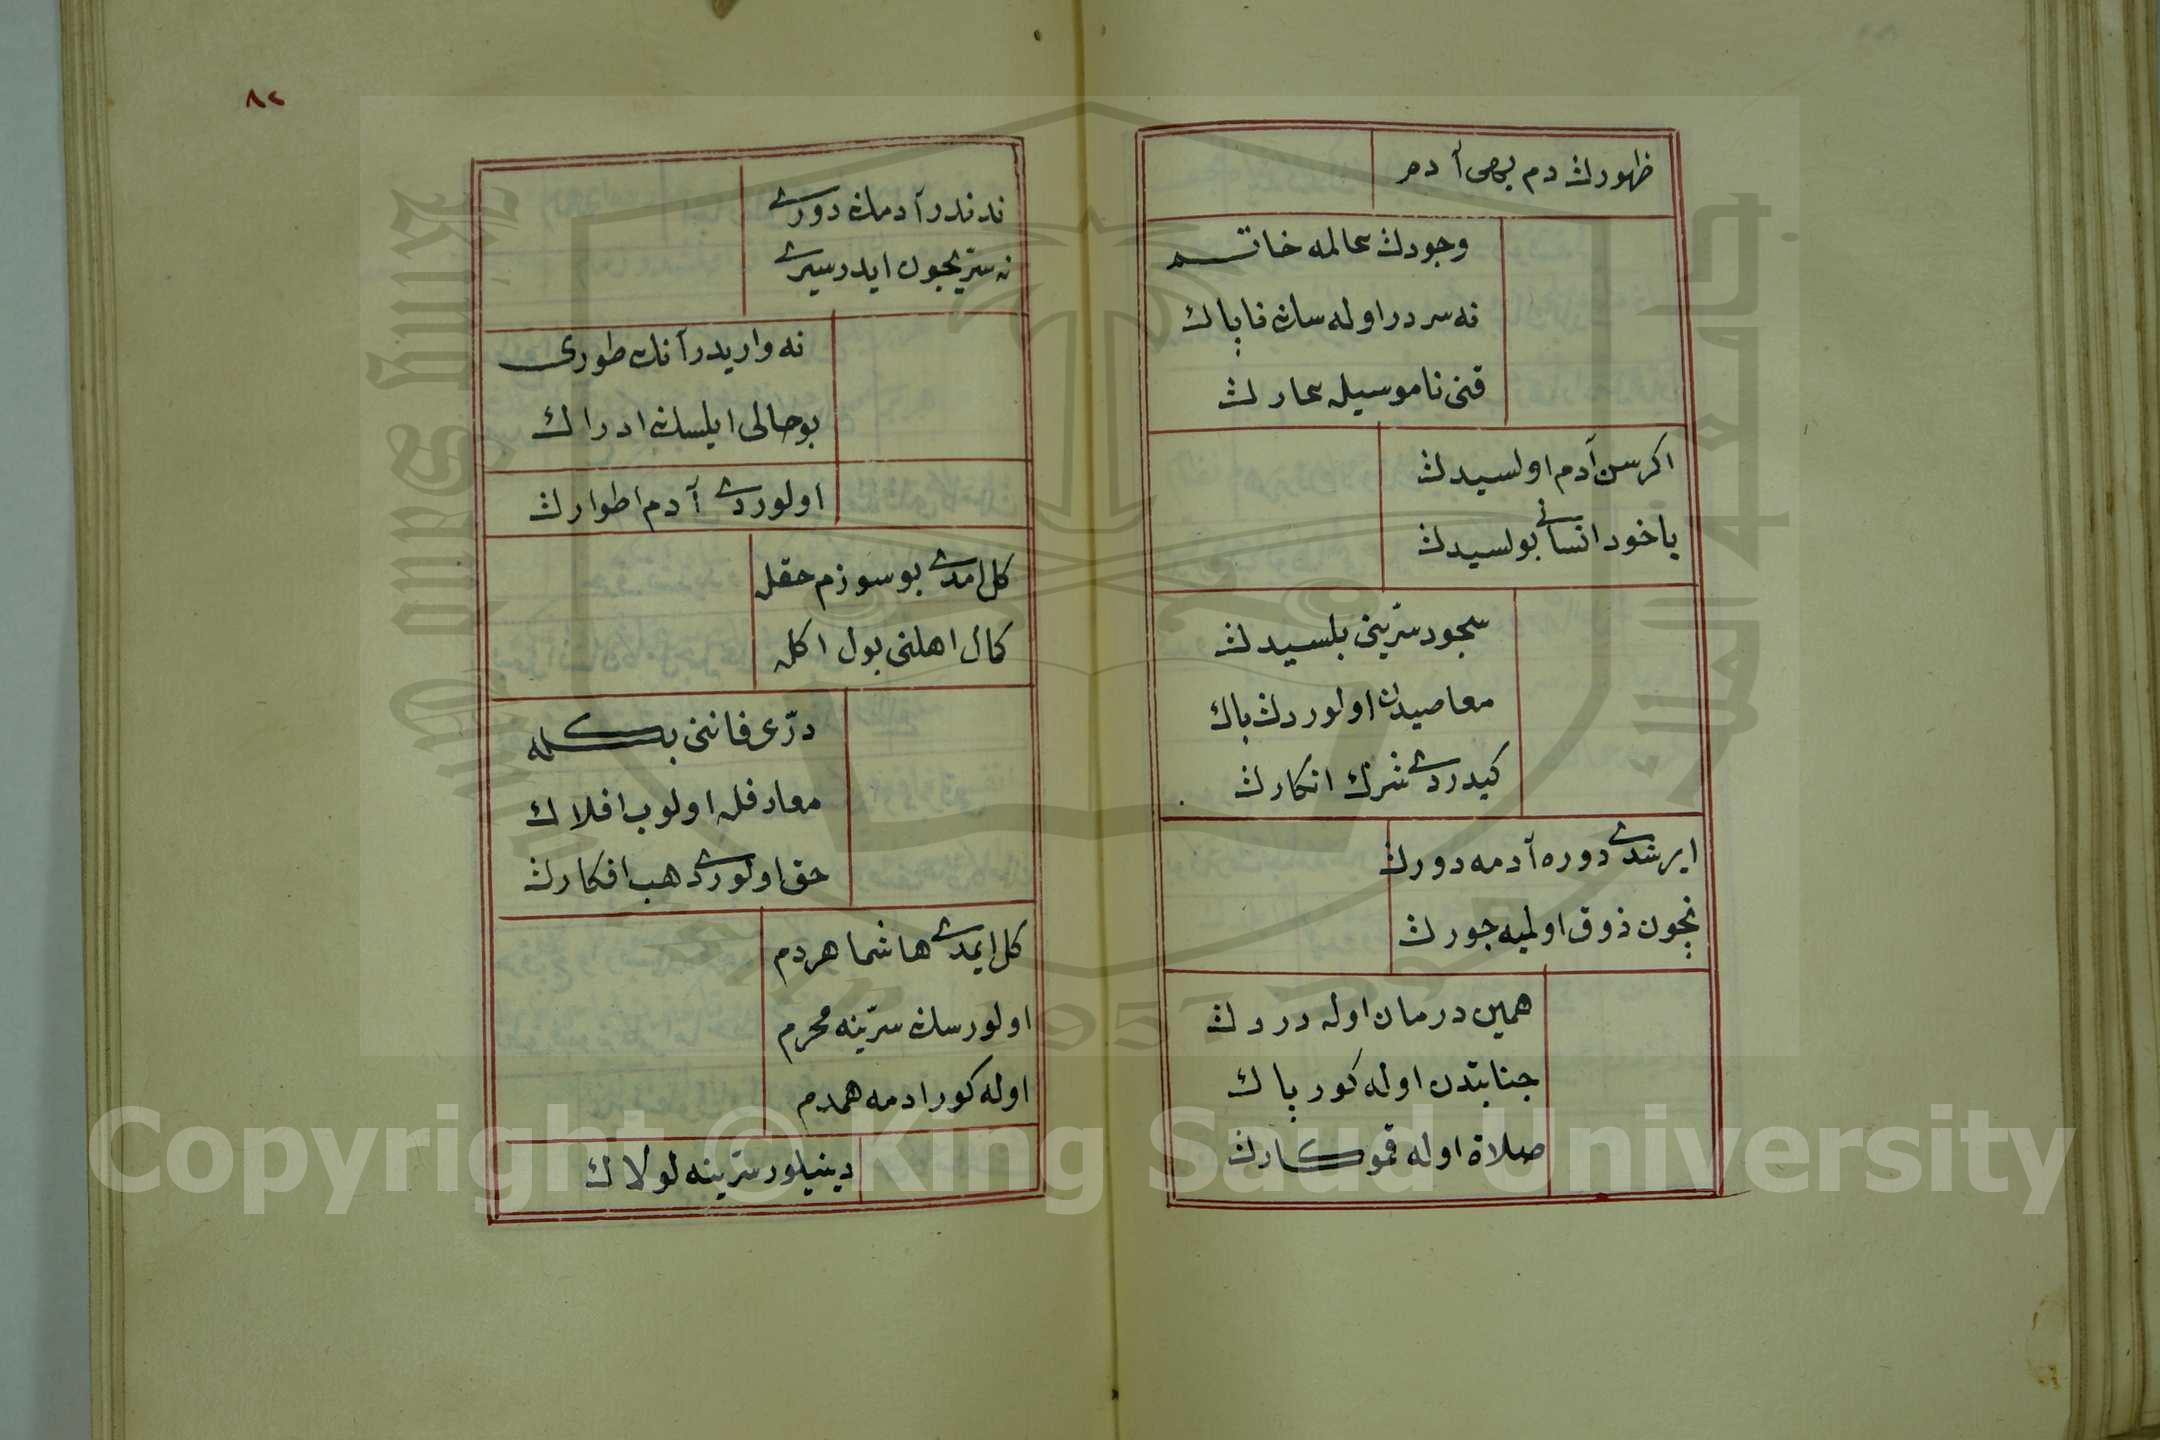 ظهورك دم بدم آدم
وجودك عالمه خاتم
نه سر در اوله سن ناپاك
قنی ناموسیله عارك
اكر سن آدم اولسیدك
یا خود انسانی بولسیدك
سجود سرّینی بلسیدك
معاصیدن اولوردك پاك
كیدردی شرك انكارك
ایرشدی دوره آدمه دورك
نچون ذوق اولمیه جورك
همین درمان اوله دردك
جنابتدن اوله كور پاك
صلاة اوله قمو كارك
٨٢
ندندر آدمك دوری
نه سرّیچون ایدر سیری
نه واریدر آنك طوری
بو حالی ایلسك ادراك
اولوردی آدم اطوارك
كل امدی بو سوزم حقله
كمال اهلنی بول اكله
درّی فاننی بكله
معارفله اولوب افلاك
حق اولوردی هب افكارك
كل ایمدی هاشما هردم
اولورسك سرّینه محرم
اوله كور ادمه همدم
دینیلور سرّینه لولاك
Copyright © King Saud University
King Saud University
1957